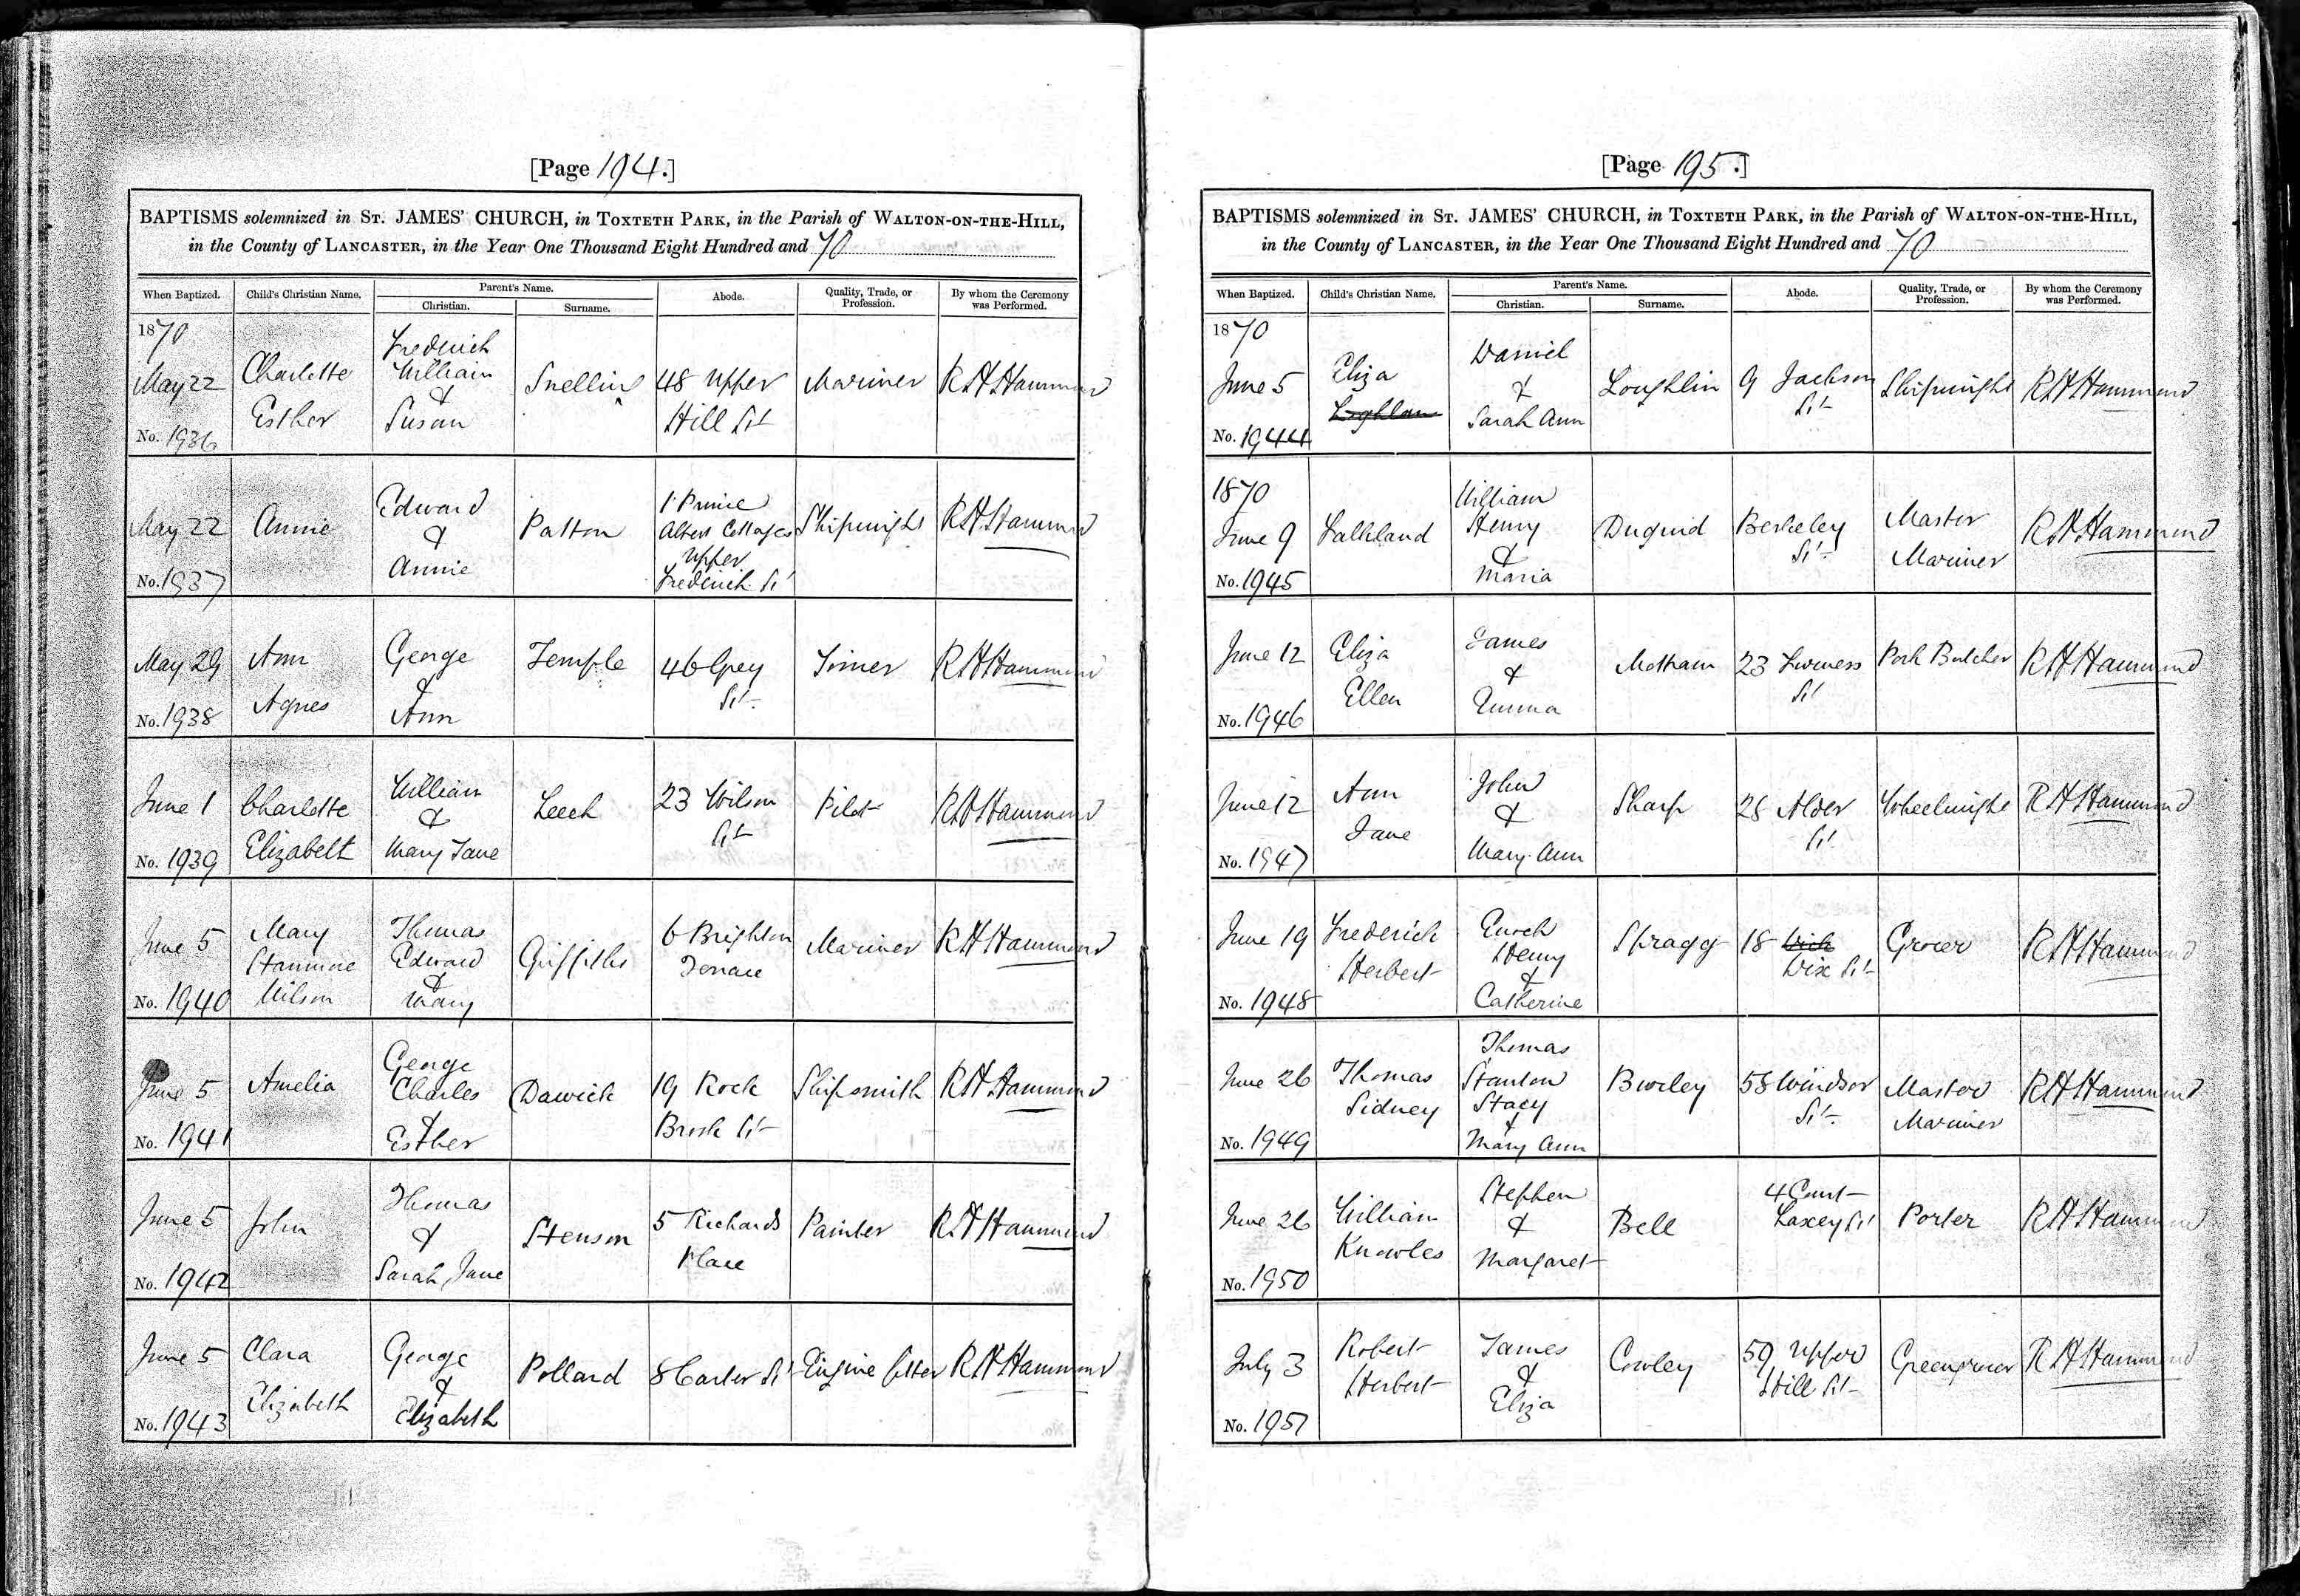 [Page 194.]
BAPTISMS solemnized in ST. JAMES' CHURCH, in TOXTETH PARK, in the Parish of WALTON-ON-THE-HILL,
in the County of LANCASTER, in the Year One Thousand Eight Hundred and 70
When Baptized. Child's Christian Name. Parent's Name. Christian. Surname. Abode. Quality, Trade, or Profession. By whom the Ceremony was Performed.
1870 May 22 No. 1936 Charlotte Esther Frederick William & Susan Snellin 48 Upper Hill St Mariner R H Hammond
May 22 No. 1937 Annie Edward & Annie Patton 1 Prince Albert Cottages Upper Frederick St Shipwright R H Hammond
May 29 No. 1938 Ann Agnes George & Ann Temple 46 Grey St Joiner R H Hammond
June 1 No. 1939 Charlotte Elizabeth William & Mary Jane Leech 23 Wilson St Pilot R H Hammond
June 5 No. 1940 Mary Stanmore Wilson Thomas Edward & Mary Griffiths 6 Brighton Terrace Mariner R H Hammond
June 5 No. 1941 Amelia George Charles & Esther Dawick 19 Rock Brook St Shipsmith R H Hammond
June 5 No. 1942 John Thomas & Sarah Jane Stenson 5 Richards Place Painter R H Hammond
June 5 No. 1943 Clara Elizabeth George & Elizabeth Pollard 8 Carter St Engine fitter R H Hammond
[Page 195.]
BAPTISMS solemnized in ST. JAMES' CHURCH, in TOXTETH PARK, in the Parish of WALTON-ON-THE-HILL,
in the County of LANCASTER, in the Year One Thousand Eight Hundred and 70
When Baptized. Child's Christian Name. Parent's Name. Christian. Surname. Abode. Quality, Trade, or Profession. By whom the Ceremony was Performed.
1870 June 5 No. 1944 Eliza Daniel & Sarah Ann Loughlin 9 Jackson St Shipwright R H Hammond
1870 June 9 No. 1945 Falkland William Henry & Maria Duguid Berkeley St Master Mariner R H Hammond
June 12 No. 1946 Eliza Ellen James & Emma Mottram 23 St Pork Butcher R H Hammond
June 12 No. 1947 Ann Jane John & Mary Ann Sharp 28 Alder St Wheelwright R H Hammond
June 19 No. 1948 Frederick Herbert Enoch Henry & Catherine Spragg 18 Dix St Grocer R H Hammond
June 26 No. 1949 Thomas Sidney Thomas Stanton Stacy & Mary Ann Burley 58 Windsor St Master Mariner R H Hammond
June 26 No. 1950 William Knowles Stephen & Margaret Bell 4 Court Laxey St Porter R H Hammond
July 3 No. 1951 Robert Herbert James & Eliza Cowley 59 Upper Hill St Greengrocer R H Hammond